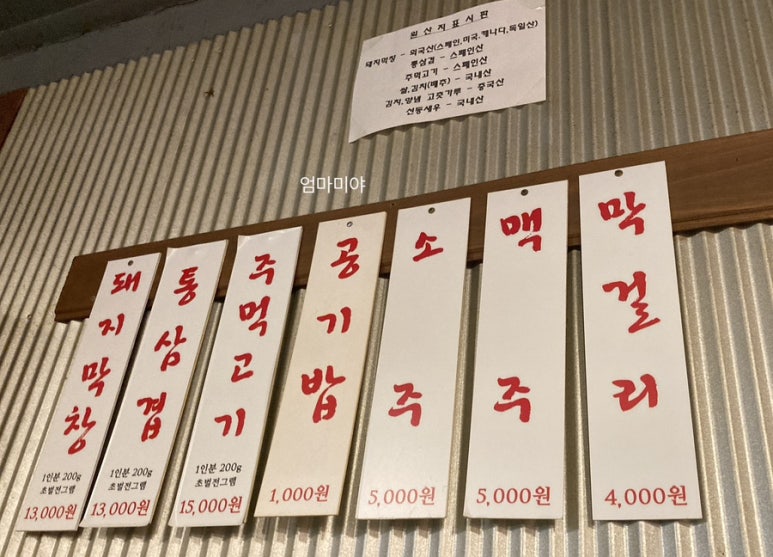 원산지표시판
돼지막창 - 외국산(스페인,미국,캐나다,독일산)
통삼겹 - 스페인산
주먹고기 - 스페인산
쌀,김치(배추) - 국내산
김치,양념 고춧가루 - 중국산
선동새우 - 국내산
엄마미야
돼지막창
1인분 200g
초벌전그램
13,000원
통삼겹
1인분 200g
초벌전그램
13,000원
주먹고기
1인분 200g
초벌전그램
15,000원
공기밥
1,000원
소주
5,000원
맥주
5,000원
막걸리
4,000원